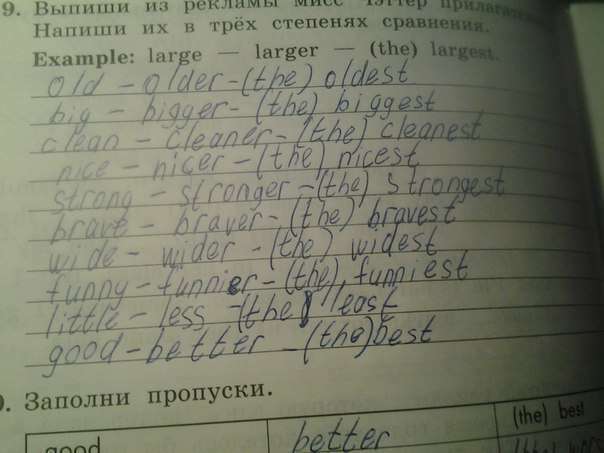 9. Выпиши из рекламы мисс Чэттер
Напиши их в трёх степенях сравнения.
Example: large — larger — (the) largest.
old – older – (the) oldest
big – bigger – (the) biggest
clean – cleaner – (the) cleanest
nice – nicer – (the) nicest
strong – stronger – (the) strongest
brave – braver – (the) bravest
wide – wider – (the) widest
funny – funnier – (the) funniest
little – less – (the) least
good – better – (the) best
Заполни пропуски.
good better (the) best